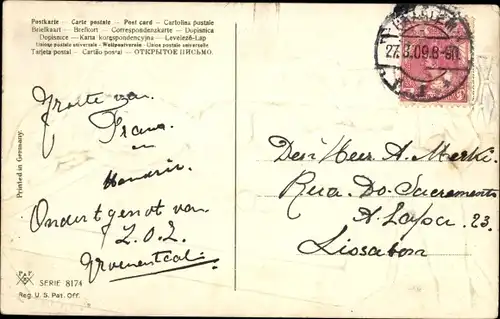 Postkarte - Carte postale - Post card - Cartolina postale
Brietkaart - Brefkort - Correspondenzkarte - Dopisnica
Dopisnice - Karta korespondencyjna - Levelező-Lap
Unione postale universale - Weltpostverein - Union postale universelle
Tarjeta postal - Cartão postal - ОТКРЫТОЕ ПИСЬМО.
27.8.09.8-9
Groete van
Frans
en
Hendrik
Ondertgenot van
Z.O.Z.
Groenental
Den Heer A. Merki
Rua Do Sacramento
A Lapa 23.
Lissabon
Printed in Germany.
SERIE 8174
Reg. U. S. Pat. Off.